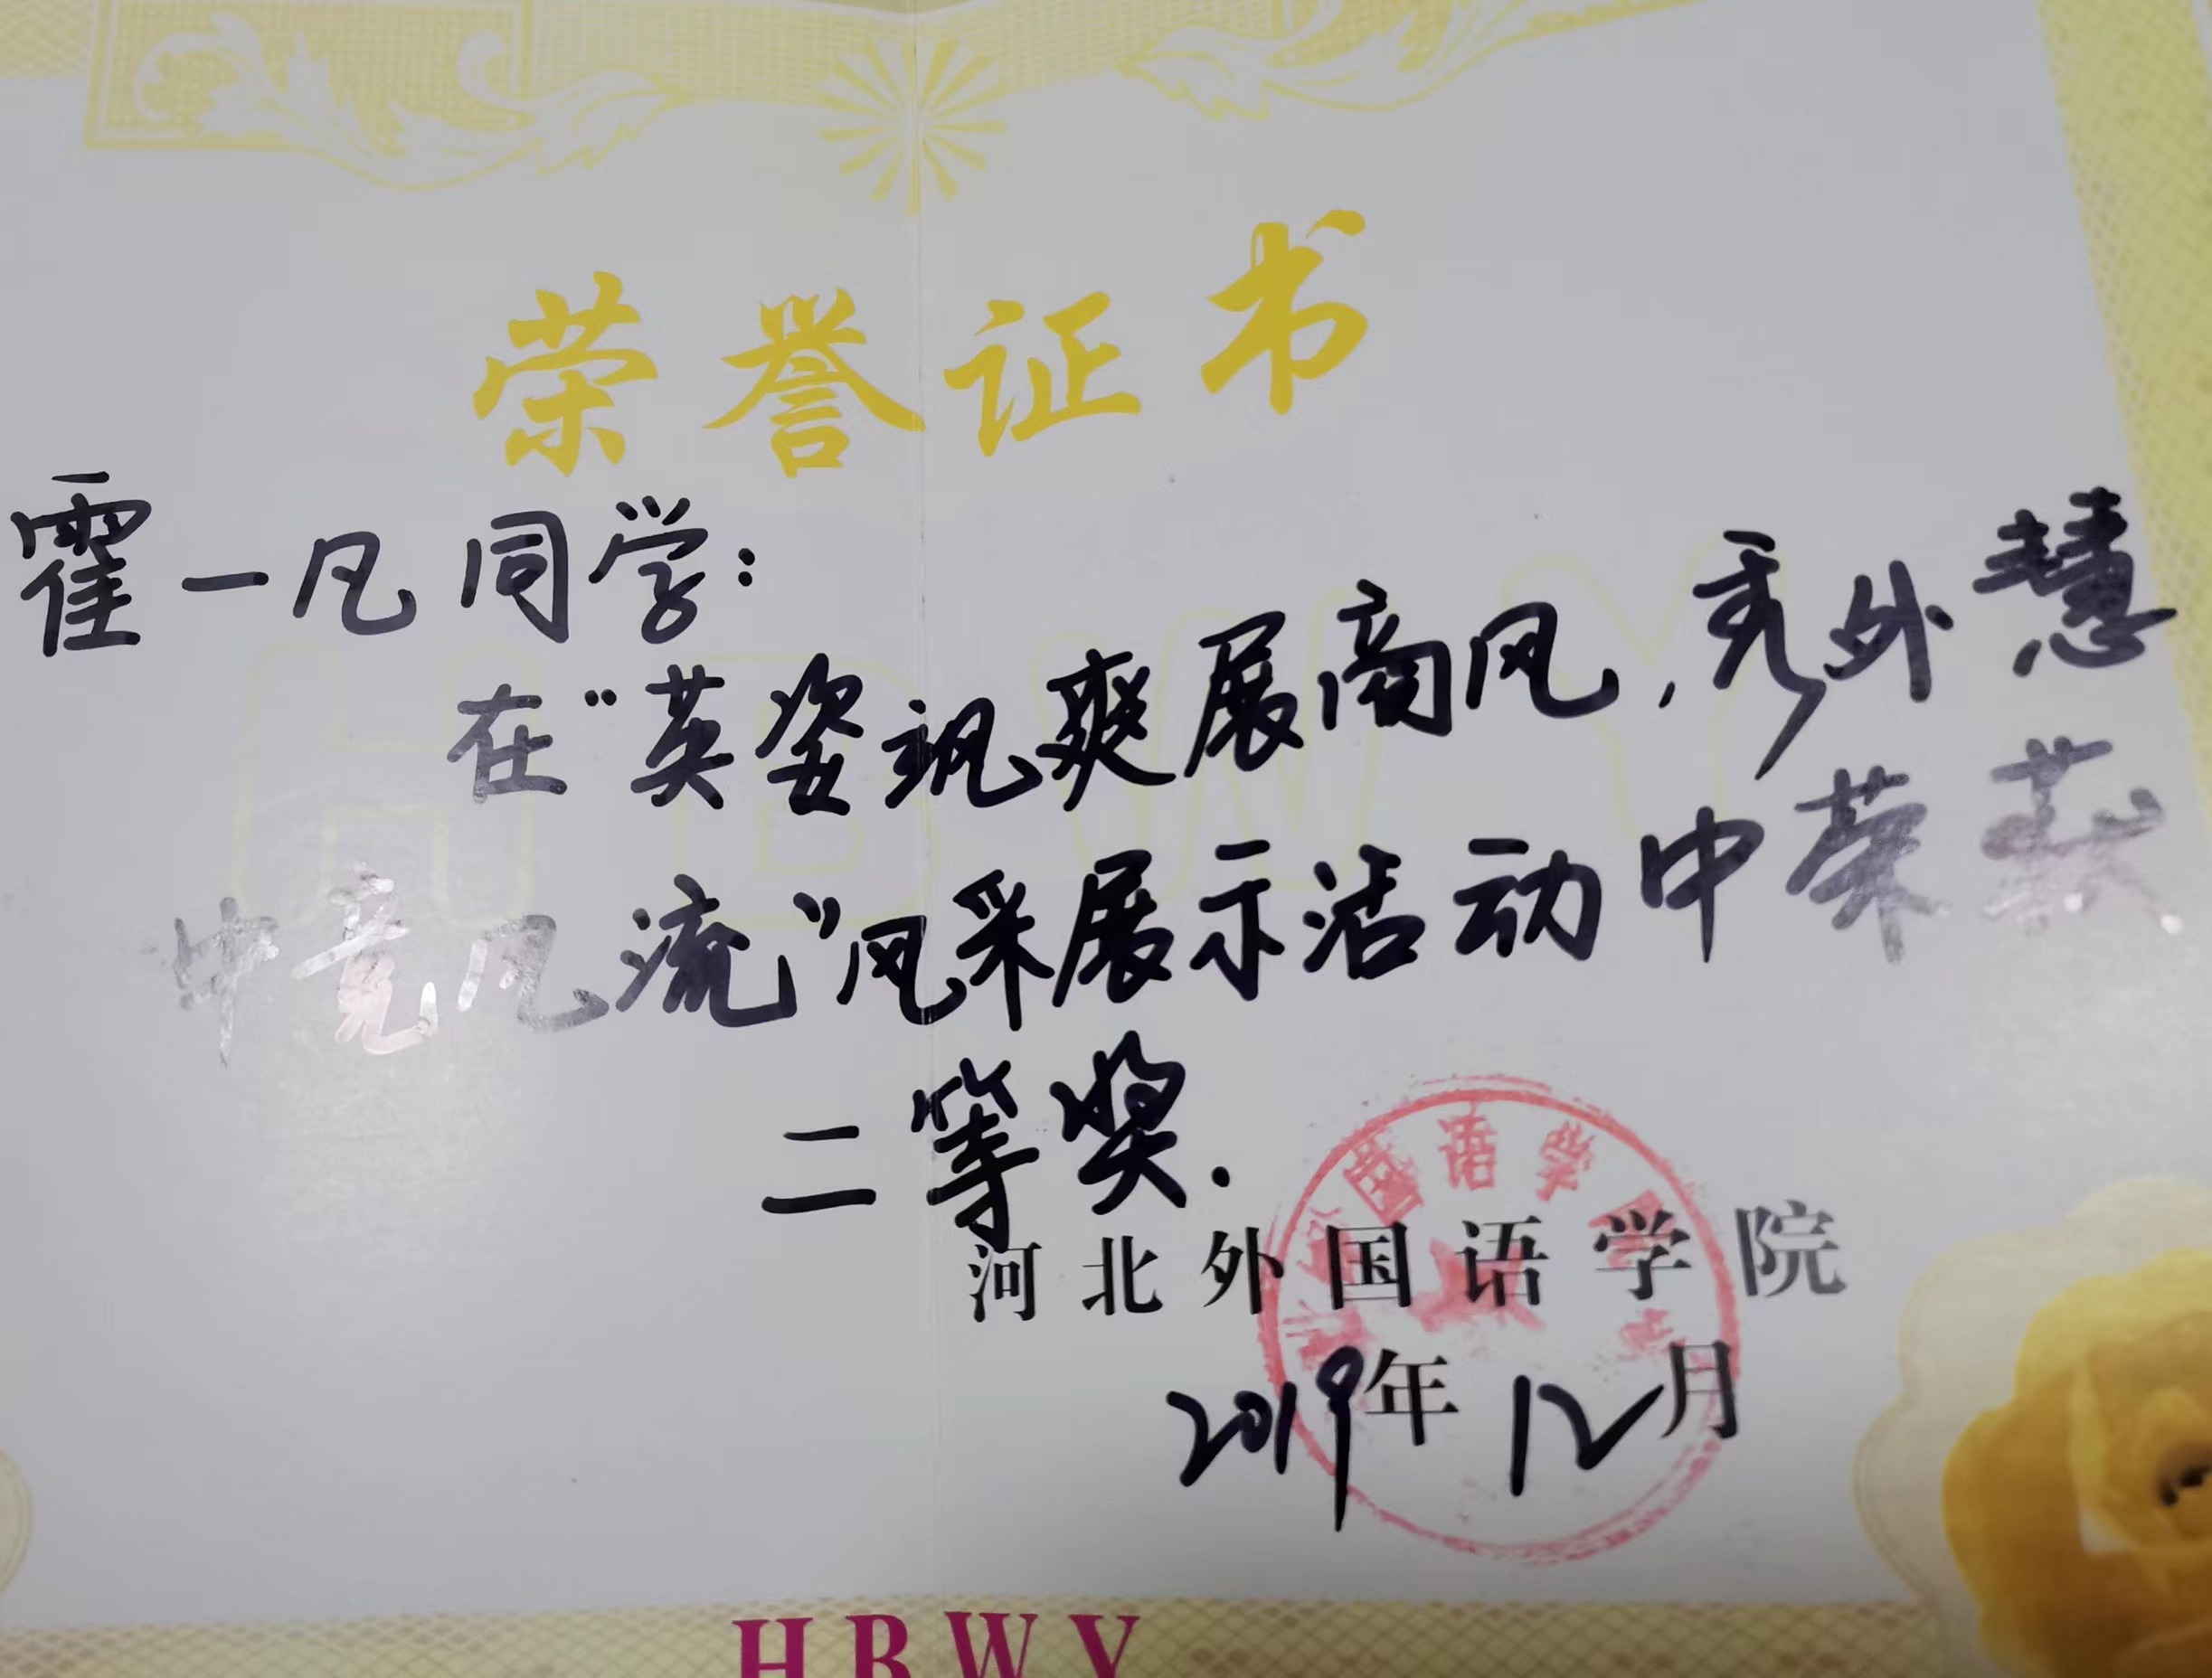 荣誉证书
霍一凡同学:
在“英姿飒爽展商风,秀外慧
中竞风流”风采展示活动中荣获
二等奖.
国语学
河北外国语学院
2019年12月
HBWY